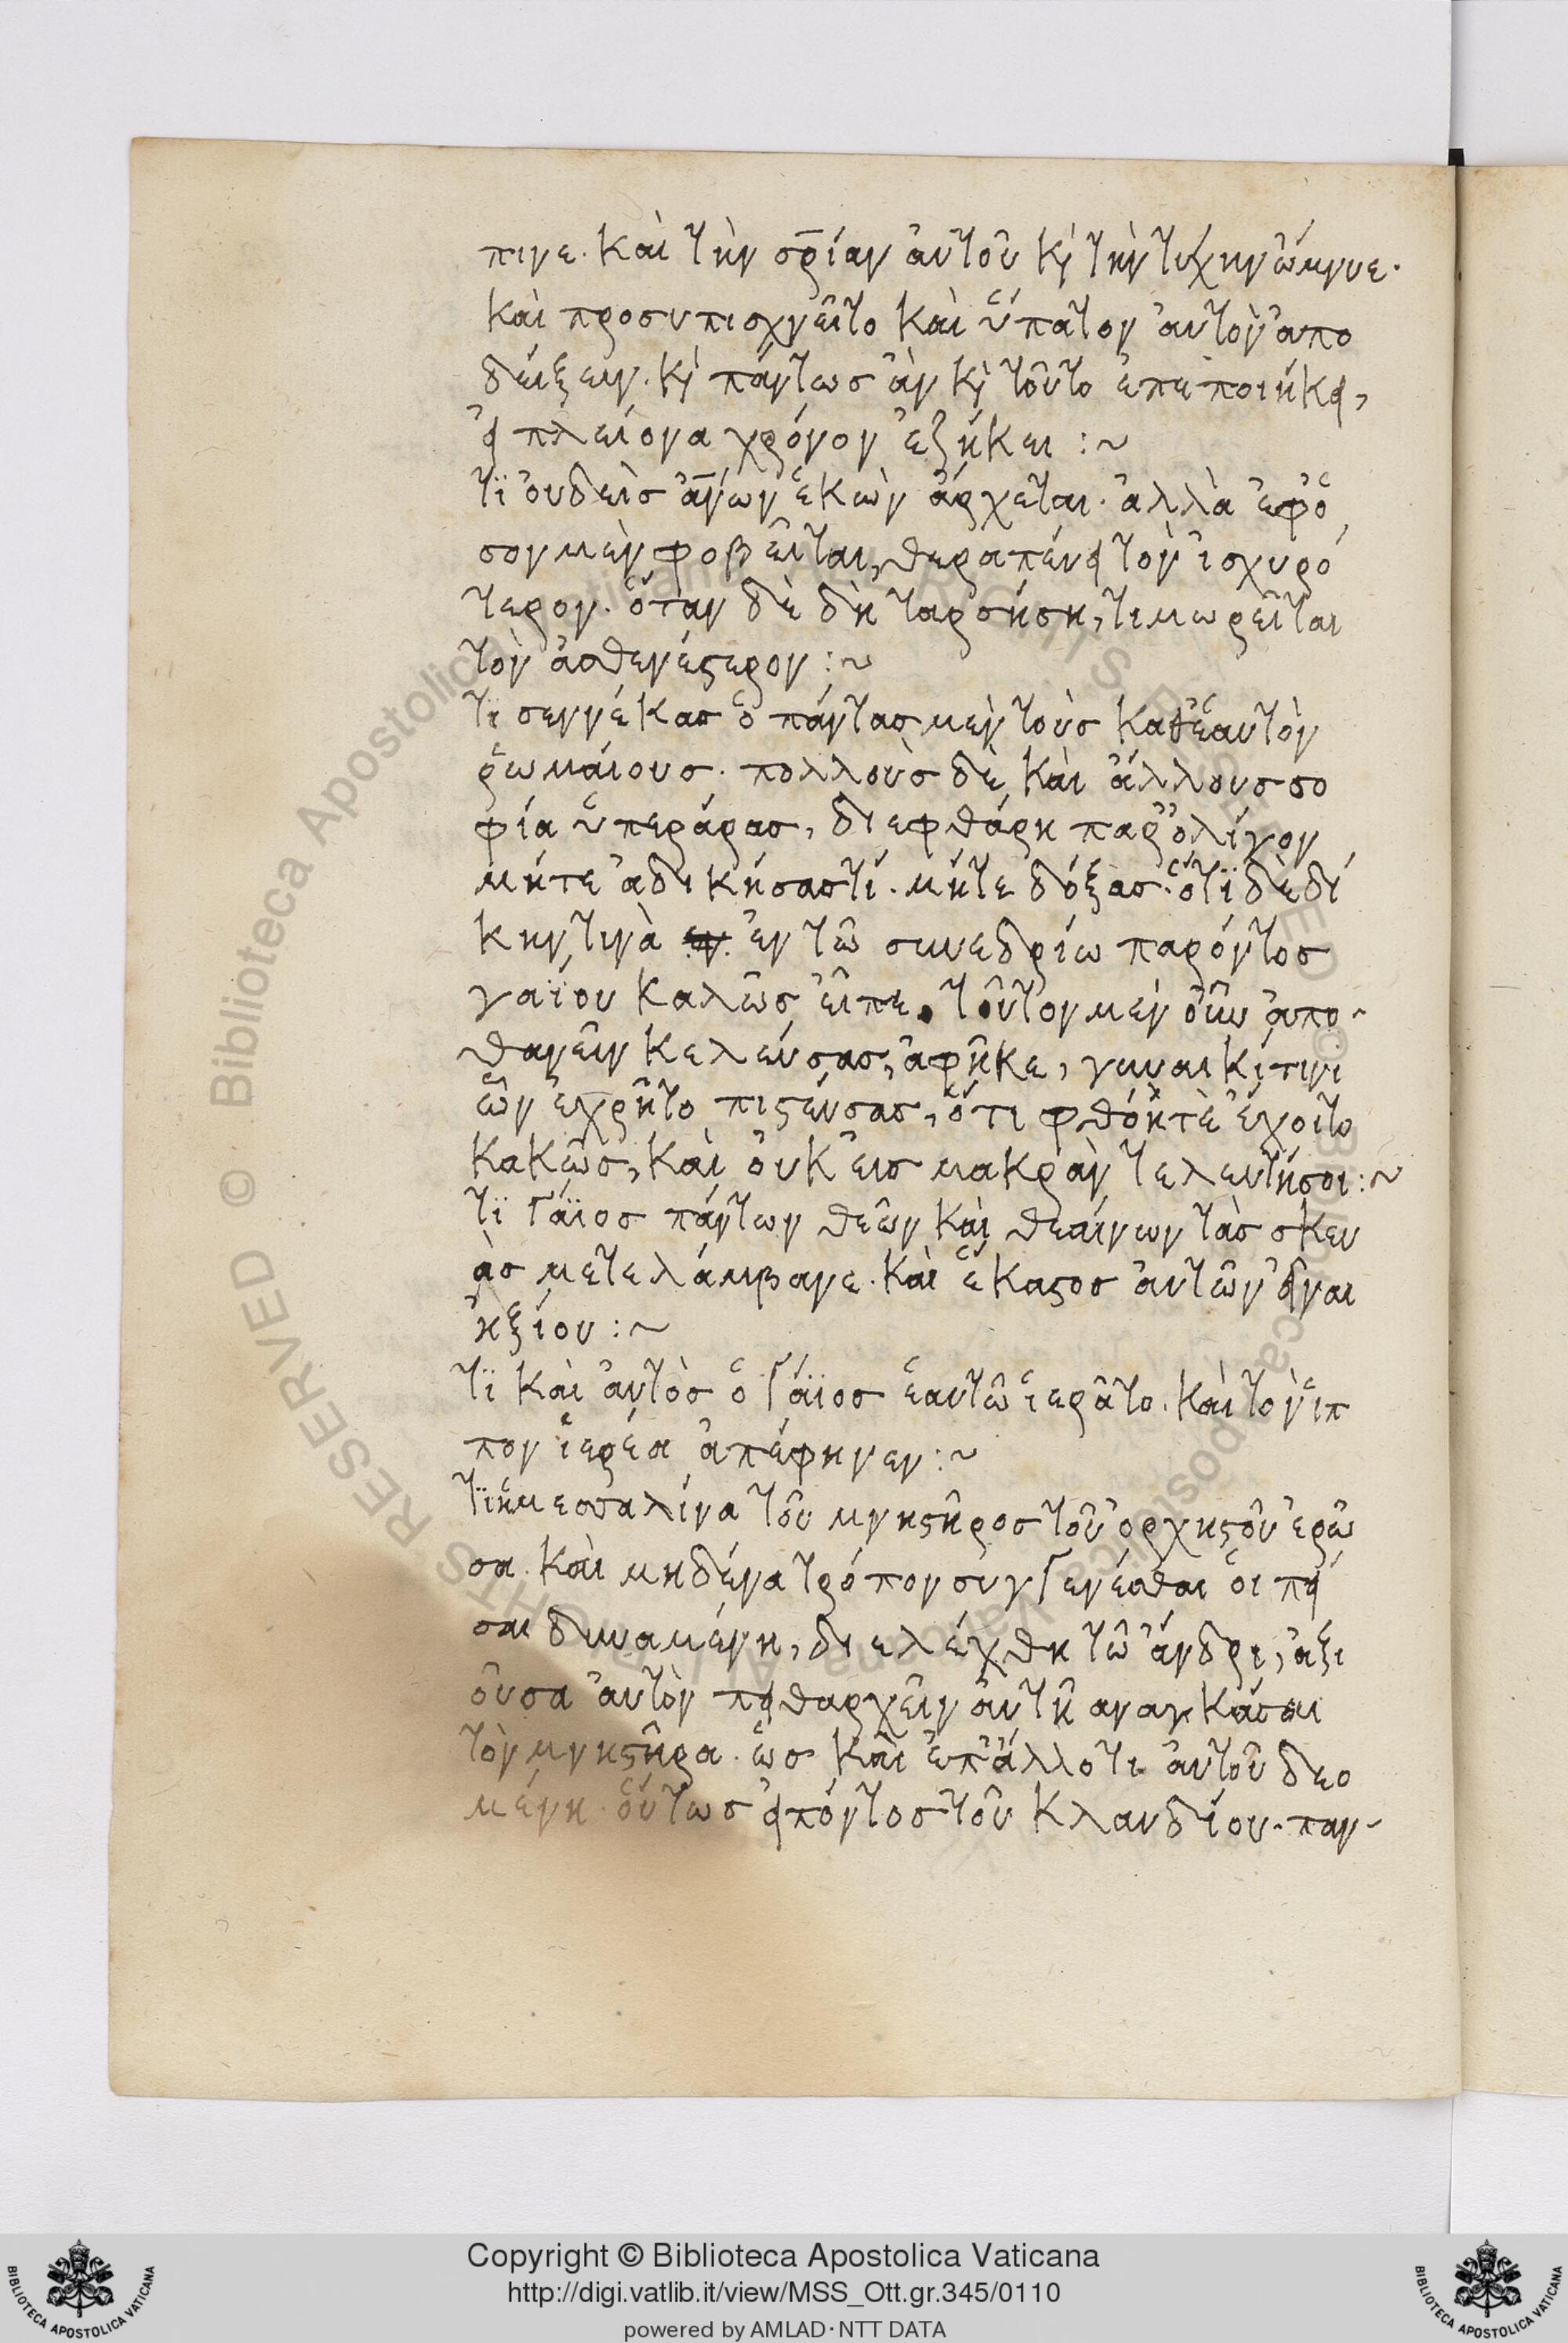 πινε· καὶ τὴν σρ̅ίαν ἀυτοῦ κὶ τὴν τύχην ὤμνυε·
καὶ προσυπισχνεῖτο καὶ ὕπατον ἀυτὸν ἀπο
δείξειν· κὶ πάντωσ ἂν κὶ τοῦτο ἐπεποιήκει,
εἰ πλείονα χρόνον ἐζήκει :~
τϊ ὀυδεὶσ ἀν̅ων ἑκὼν ἄρχεται· ἀλλὰ ἐφ᾽ ὅ
σον μὲν φοβεῖται, θεραπέυει τὸν ἰσχυρό
τερον· ὅταν δὲ δὴ ταρσήση, τιμωρεῖται
τὸν ἀσθενέστερον :~
τϊ σεννέκασ ὁ πάντασ μὲν τοὺσ καθ᾽ ἑαυτὸν
ῥωμαίουσ· πολλοὺσ δὲ καὶ ἄλλουσ σο
φία ὑπεράρασ, διεφθάρη παρ᾽ ὀλίγον
μήτε ἀδικήσασ τί· μήτε δόξασ· ὅτϊ δὲ δί
κην τινὰ ἐν τῶ συνεδρίω παρόντοσ
γαΐου καλῶσ εἶπε. τοῦτον μὲν οὖν ἀπο-
θανεῖν κελεύσασ, ἀφῆκε, γυναικί τινι
ὧν ἐχρῆτο πιστέυσασ, ὅτι φθόη τὲ ἔχοιτο
κακῶσ, καὶ ὀυκ ἐισ μακρὰν τελευτήσοι :~
τϊ Γάϊοσ πάντων θεῶν καὶ θεαίνων τὰσ σκευ
ὰσ μετελάμβανε· καὶ ἕκαστοσ ἀυτῶν εἶναι
ἠξίου :~
τϊ καὶ ἀυτὸσ ὁ Γάϊοσ ἑαυτῶ ἱερᾶτο· καὶ τὸν ἵπ
πον ἱερέα ἀπέφηνεν :~
τϊ ἡ μεσσαλίνα τοῦ μνηστῆροσ τοῦ ὀρχηστοῦ ἐρῶ
σα· καὶ μηδένα τρόπον συγΓενέσθαι ὁι πεί
σαι δυναμένη, διελέχθη τῶ ἀνδρι, ἀξι
οῦσα ἀυτὸν πειθαρχεῖν ἀυτῆ αναγκάσαι
τὸν μνηστῆρα· ὡσ καὶ ἐπ᾽ ἄλλο τι ἀυτοῦ δεο
μένη· ὅυτωσ εἰπόντοσ τοῦ Κλαυδίου· παν-
Copyright © Biblioteca Apostolica Vaticana
http://digi.vatlib.it/view/MSS_Ott.gr.345/0110
powered by AMLAD·NTT DATA